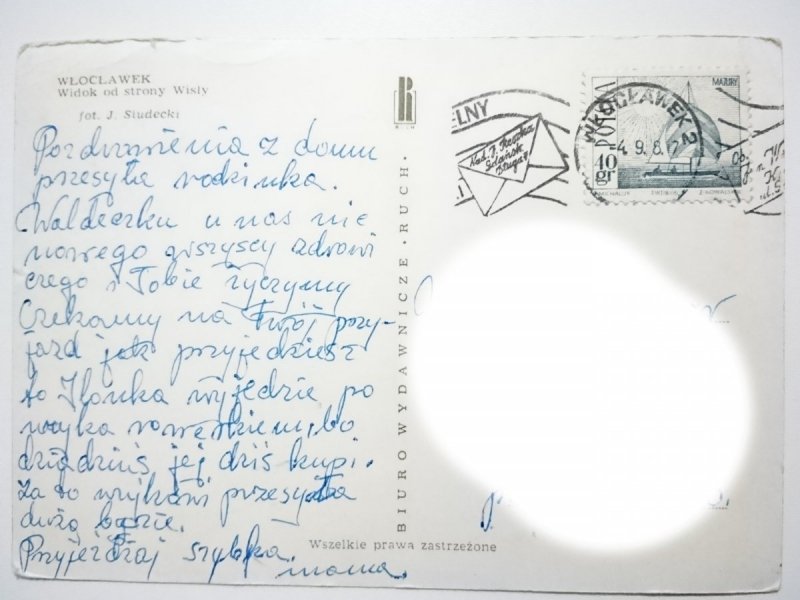 WŁOCŁAWEK
Widok od strony Wisły
fot. J. Siudecki
Pozdrowienia z domu
przesyła rodzinka.
Waldeczku u nas nic
nowego wszyscy zdrowi
czego i Tobie życzymy
Czekamy na Twój przy-
jazd jak przyjedziesz
to Ilonka wyjedzie po
wujka rowerkiem, bo
dziadziuś jej dziś kupi.
Za to wujkowi przesyła
dużą buzię.
Przyjeżdżaj szybko.
mama.
BIURO WYDAWNICZE • RUCH •
RUCH
Wszelkie prawa zastrzeżone
ELNY
Nad.
Gdańsk
Długa
WŁOCŁAWEK 2
-4.9.6
POLSKA
MAZURY
40
gr